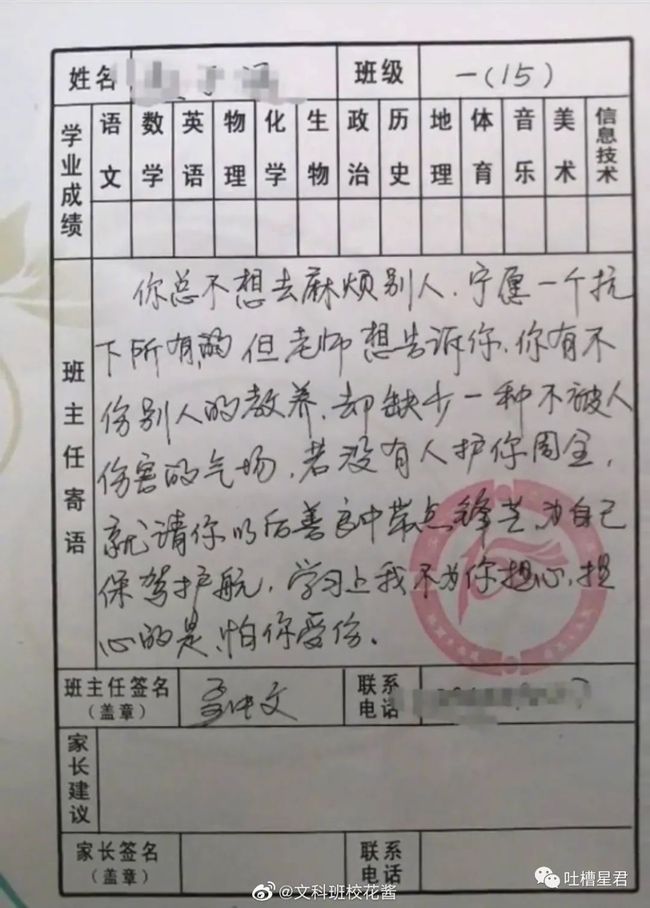 姓名 班级 一(15)
学业成绩 语文 数学 英语 物理 化学 生物 政治 历史 地理 体育 音乐 美术 信息技术
班主任寄语
你总不想去麻烦别人.宁愿一个抗
下所有的 但老师想告诉你.你有不
伤别人的教养.却缺少一种不被人
伤害的气场.若没有人护你周全,
就请你以后善良中带点锋芒 为自己
保驾护航,学习上我不为你担心.担
心的是,怕你受伤.
班主任签名
(盖章)
联系
电话
家长建议
家长签名
(盖章)
联系
电话
@文科班校花酱
吐槽星君